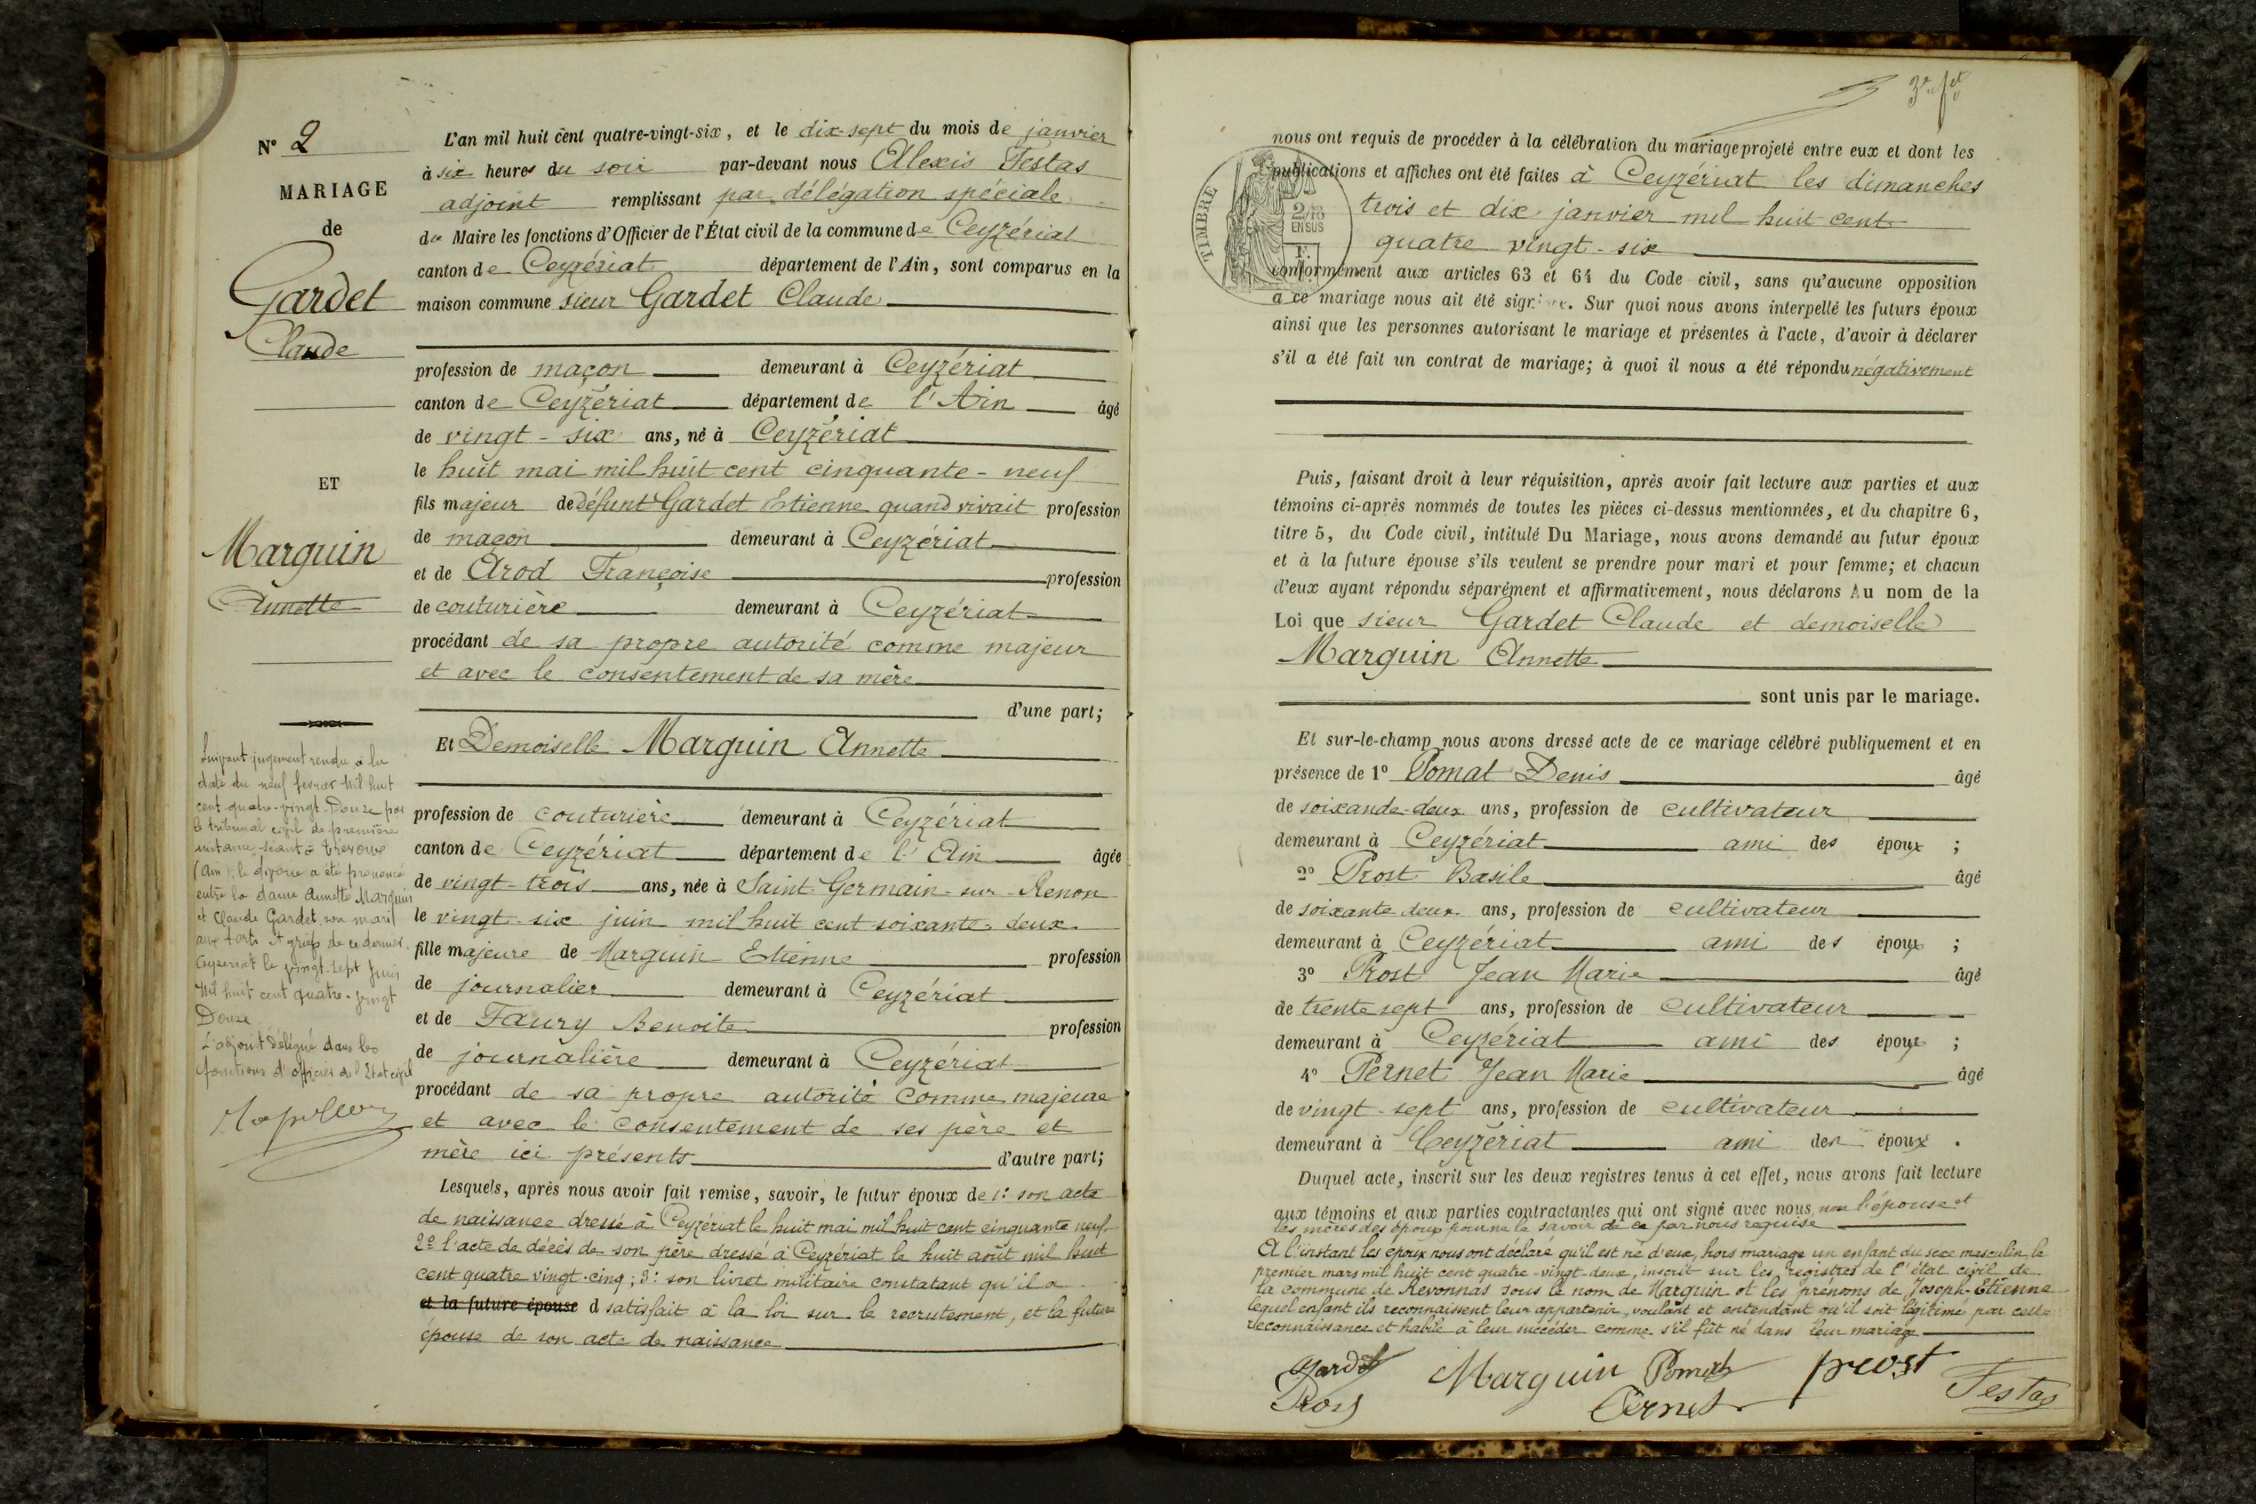 N° 2
MARIAGE
de
Gardet
Claude
ET
Marguin
Annette
Suivant jugement rendu à la
date du neuf fevrier Mil huit
cent quatre-vingt-Douze par
le tribunal civil de première
instance séant à trevoux
(Ain), le divorce a été prononcé
entre la dame Annette Marguin
et Claude Gardet son mari
aux torts et griefs de ce dernier.
Ceyzeriat le vingt-sept Juin
Mil huit cent quatre-vingt
Douze
L'adjoint délégué dans les
fonctions d'officier de l'Etat civil
L'an mil huit cent quatre-vingt-six, et le dix-sept du mois de janvier
à six heures du soir par-devant nous Alexis Festas
adjoint remplissant par délégation spéciale
du Maire les fonctions d'Officier de l'État civil de la commune de Ceyzériat
canton de Ceyzériat département de l'Ain, sont comparus en la
maison commune sieur Gardet Claude
profession de maçon demeurant à Ceyzériat
canton de Ceyzériat département de l'Ain âgé
de vingt-six ans, né à Ceyzériat
le huit mai mil huit cent cinquante-neuf
fils majeur de défunt Gardet Etienne quand vivait profession
de maçon demeurant à Ceyzériat
et de Arod Françoise profession
de couturière demeurant à Ceyzériat
procédant de sa propre autorité comme majeur
et avec le consentement de sa mère
d'une part;
Et Demoiselle Marguin Annette
profession de couturière demeurant à Ceyzériat
canton de Ceyzériat département de l'Ain âgée
de vingt-trois ans, née à Saint-Germain-sur-Renon
le vingt-six juin mil huit cent soixante-deux
fille majeure de Marguin Etienne profession
de journalier demeurant à Ceyzériat
et de Faury Benoite profession
de journalière demeurant à Ceyzériat
procédant de sa propre autorité comme majeure
et avec le consentement de ses père et
mère ici présents d'autre part;
Lesquels, après nous avoir fait remise, savoir, le futur époux de 1° son acte
de naissance dressé à Ceyzériat le huit mai mil huit cent cinquante neuf
2° l'acte de décès de son père dressé à Ceyzériat le huit août mil huit
cent quatre vingt-cinq; 3° son livret militaire constatant qu'il a
et la future épouse d satisfait à la loi sur le recrutement, et la future
épouse de son acte de naissance
3e fet
TIMBRE
2/10
EN SUS
nous ont requis de procéder à la célébration du mariage projeté entre eux et dont les
publications et affiches ont été faites à Ceyzériat les dimanches
trois et dix janvier mil huit cent
quatre vingt-six
conformément aux articles 63 et 64 du Code civil, sans qu'aucune opposition
à ce mariage nous ait été signifiée. Sur quoi nous avons interpellé les futurs époux
ainsi que les personnes autorisant le mariage et présentes à l'acte, d'avoir à déclarer
s'il a été fait un contrat de mariage; à quoi il nous a été répondu négativement
Puis, faisant droit à leur réquisition, après avoir fait lecture aux parties et aux
témoins ci-après nommés de toutes les pièces ci-dessus mentionnées, et du chapitre 6,
titre 5, du Code civil, intitulé Du Mariage, nous avons demandé au futur époux
et à la future épouse s'ils veulent se prendre pour mari et pour femme; et chacun
d'eux ayant répondu séparément et affirmativement, nous déclarons Au nom de la
Loi que sieur Gardet Claude et demoiselle
Marguin Annette
sont unis par le mariage.
Et sur-le-champ nous avons dressé acte de ce mariage célébré publiquement et en
présence de 1° Pomat Denis âgé
de soixande-deux ans, profession de cultivateur
demeurant à Ceyzériat ami des époux ;
2° Prost Basile âgé
de soixante deux ans, profession de cultivateur
demeurant à Ceyzériat ami des époux ;
3° Prost Jean Marie âgé
de trente sept ans, profession de cultivateur
demeurant à Ceyzériat ami des époux ;
4° Pernet Jean Marie âgé
de vingt-sept ans, profession de cultivateur
demeurant à Ceyzériat ami des époux .
Duquel acte, inscrit sur les deux registres tenus à cet effet, nous avons fait lecture
aux témoins et aux parties contractantes qui ont signé avec nous, non l'épouse et
les mères des époux pour ne le savoir de ce par nous requise
A l'instant les époux nous ont déclaré qu'il est né d'eux, hors mariage un enfant du sexe masculin, le
premier mars mil huit cent quatre-vingt-deux, inscrit sur les registres de l'état civil de
la commune de Revonnas sous le nom de Marguin et les prénoms de Joseph-Etienne
lequel enfant ils reconnaissent leur appartenir, voulant et entendant qu'il soit légitimé par cette
reconnaissance et habile à leur succéder comme s'il fût né dans leur mariage
Gardet Marguin Pomat prost
Prost Pernet Festas